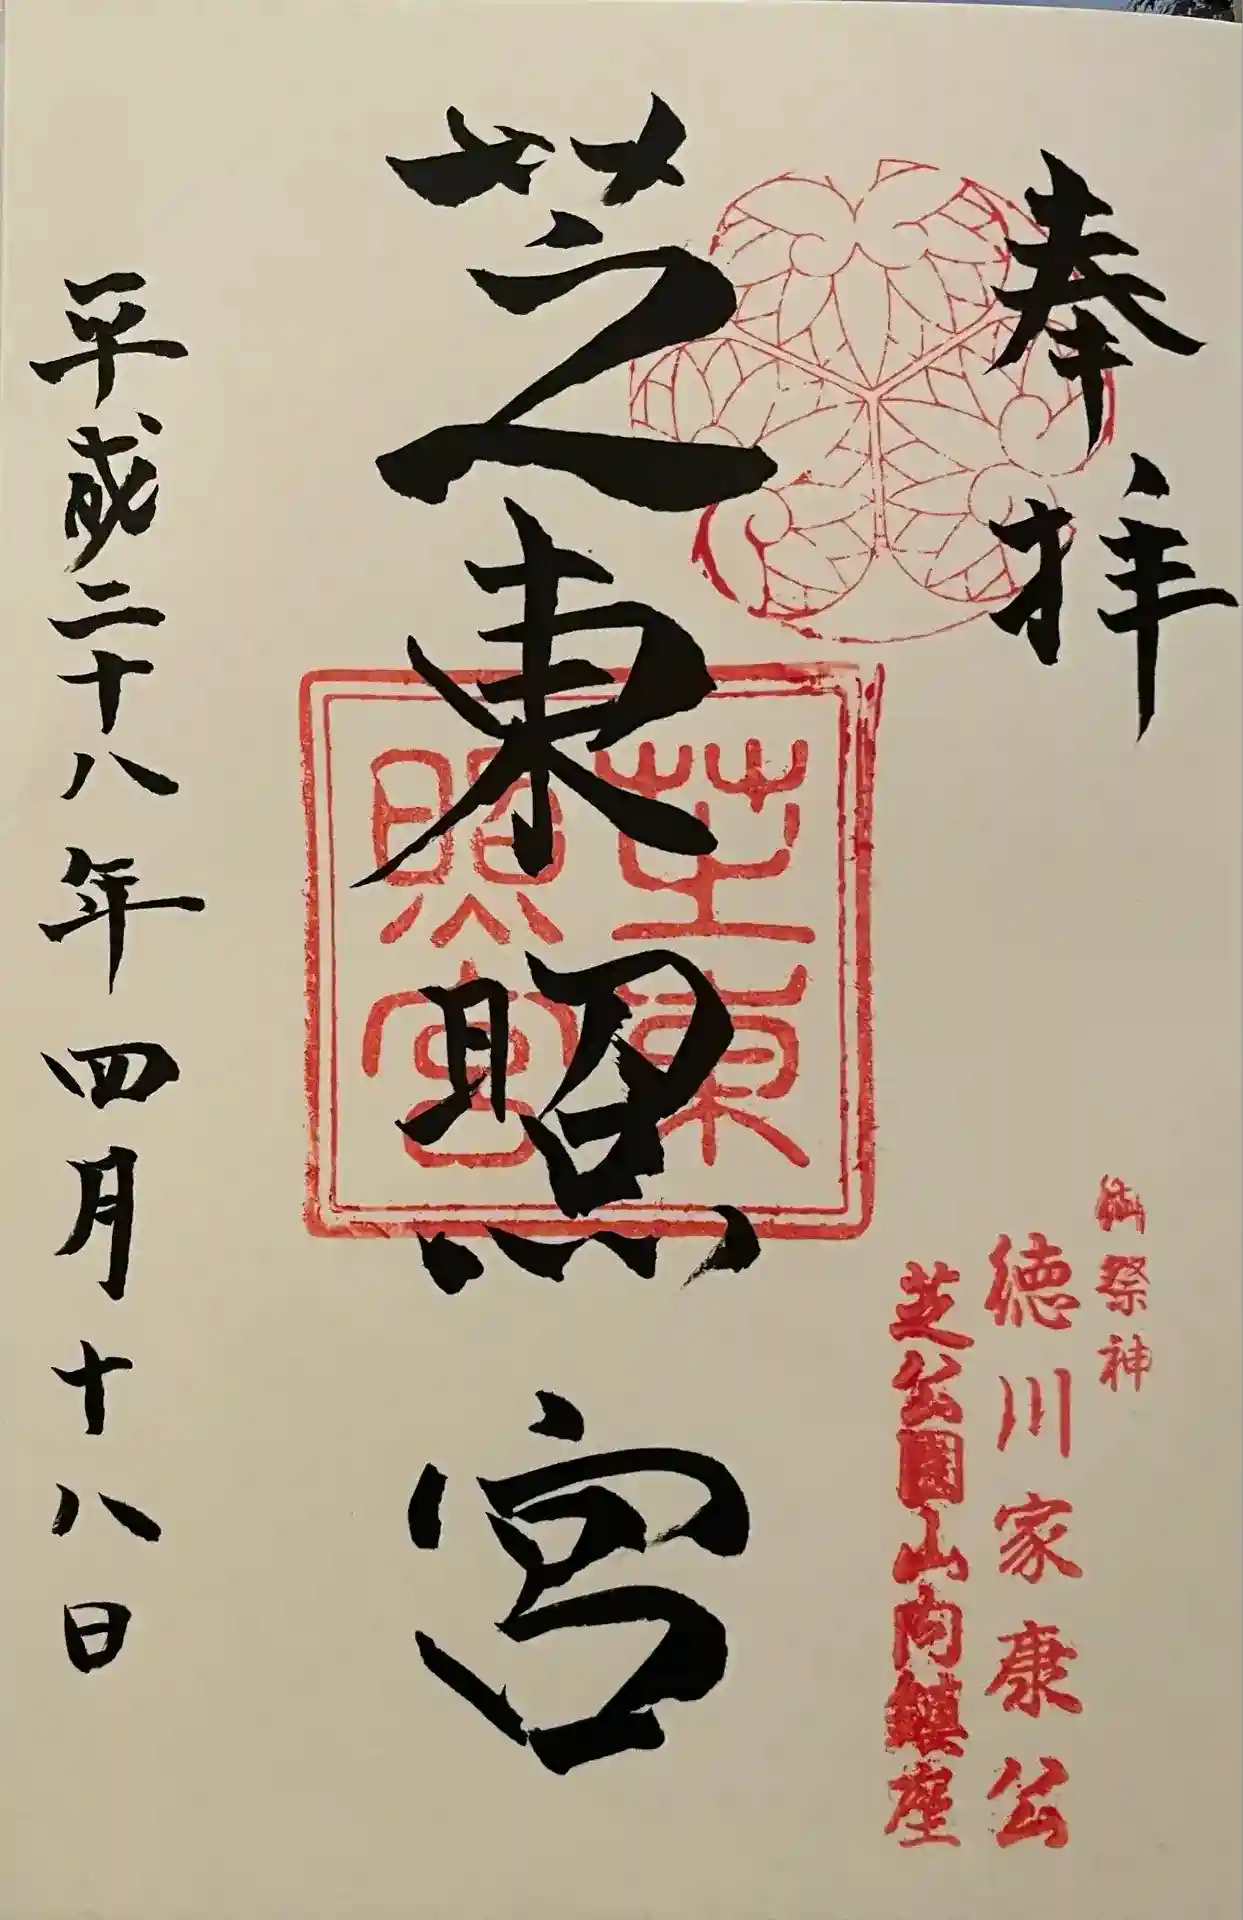 奉拝
御祭神
徳川家康公
芝公園山内鎮座
芝東照宮
芝東
照宮
平成二十八年四月十八日